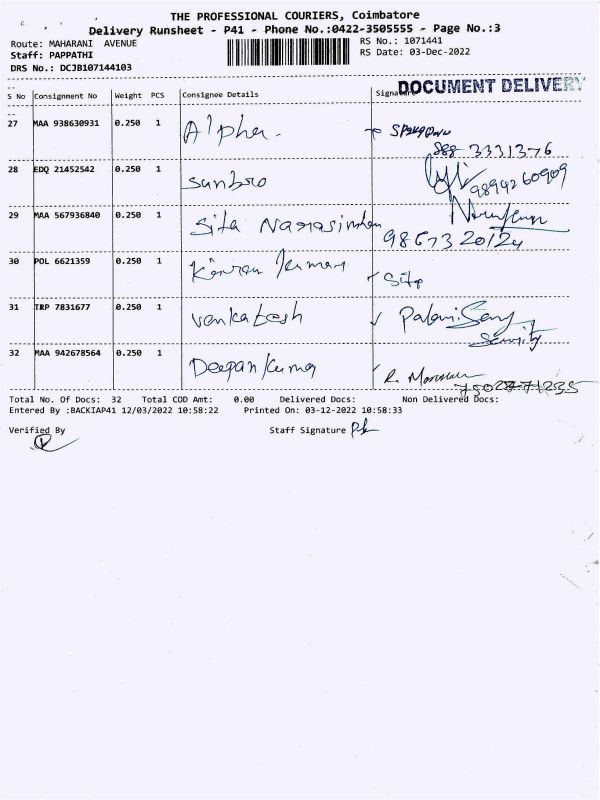 THE PROFESSIONAL COURIERS, Coimbatore
Delivery Runsheet - P41 - Phone No.:0422-3505555 - Page No.:3
Route: MAHARANI AVENUE
RS No.: 1071441
Staff: PAPPATHI
RS Date: 03-Dec-2022
DRS No.: DCJB107144103
DOCUMENT DELIVERY
S No Consignment No Weight PCS Consignee Details Signature
27 MAA 938630931 0.250 1 Alpha.
3331376
28 EDQ 21452542 0.250 1 Sunbro
9894260909
29 MAA 567936840 0.250 1 Sita
30 POL 6621359 0.250 1 Kumar
31 TRP 7831677 0.250 1 Venkatesh
Security
32 MAA 942678564 0.250 1 Deepan Kumar
Total No. Of Docs: 32 Total COD Amt: 0.00 Delivered Docs: Non Delivered Docs:
Entered By :BACKIAP41 12/03/2022 10:58:22 Printed On: 03-12-2022 10:58:33
Verified By
Staff Signature